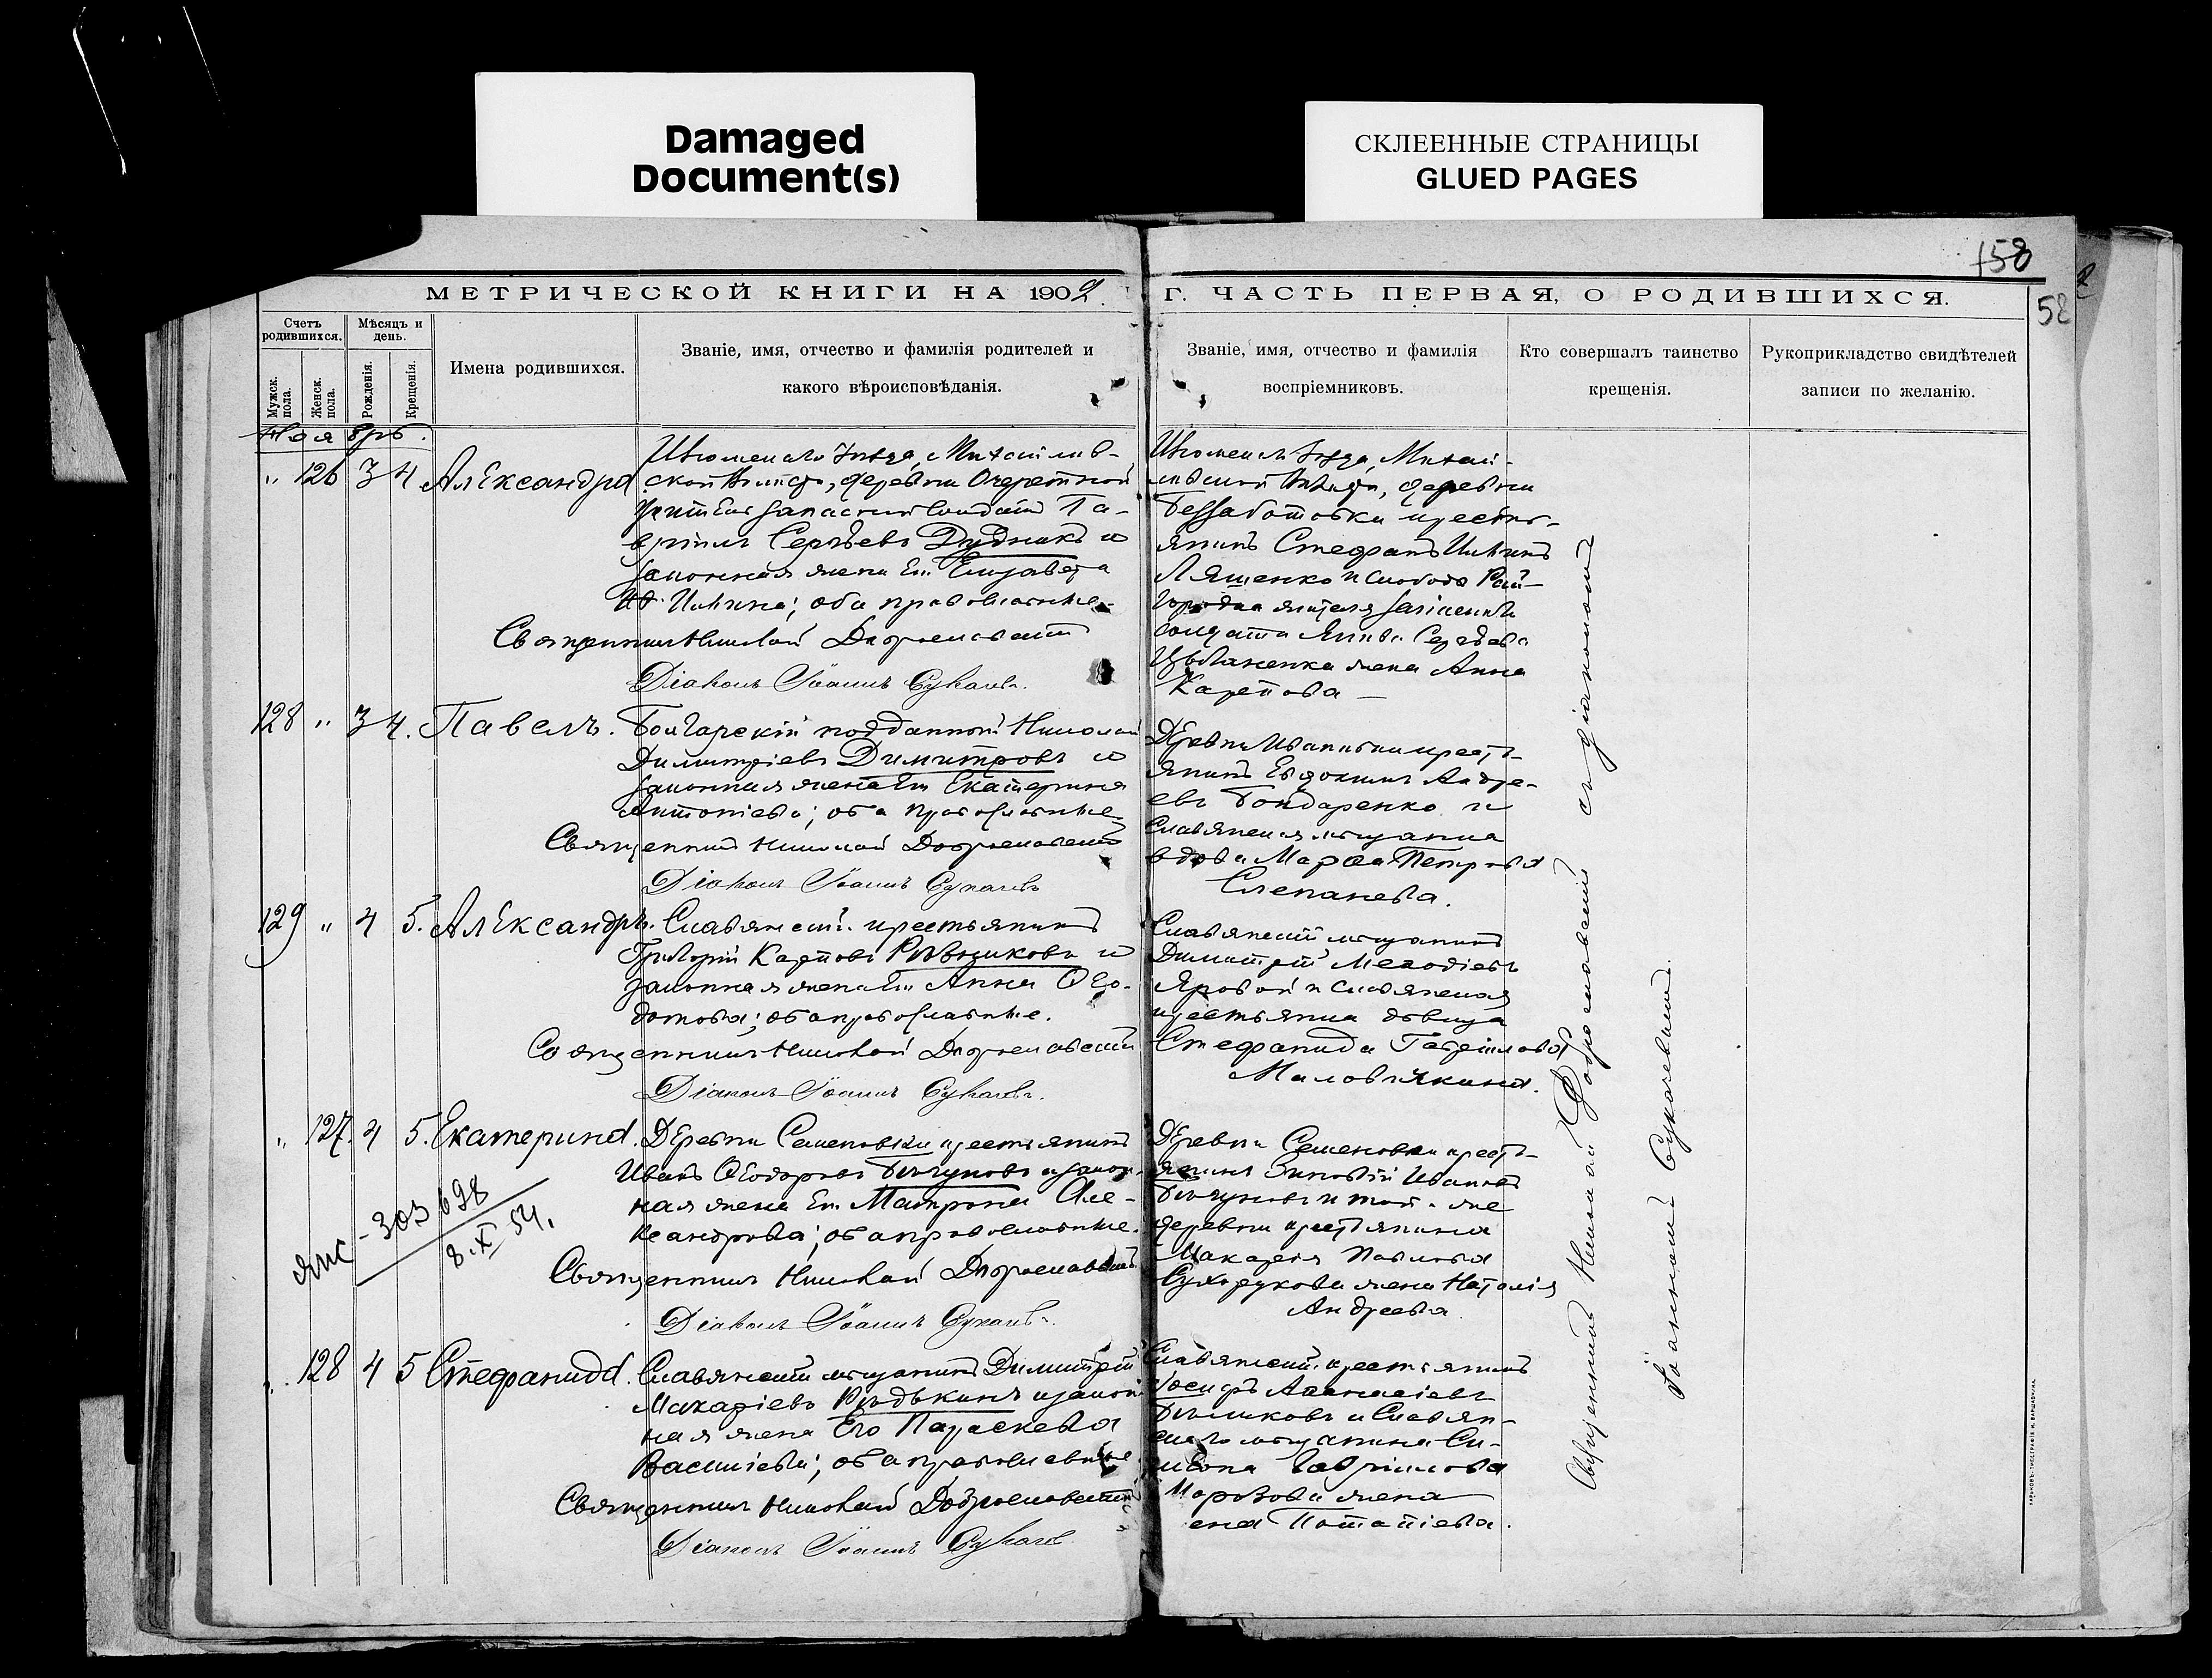 Damaged
Document(s)
СКЛЕЕННЫЕ СТРАНИЦЫ
GLUED PAGES
158
58
МЕТРИЧЕСКОЙ КНИГИ НА 1902 Г. ЧАСТЬ ПЕРВАЯ, О РОДИВШИХСЯ.
Счетъ родившихся.
Мужск. пола.
Женск. пола.
Мѣсяцъ и день.
Рожденія.
Крещенія.
Имена родившихся.
Званіе, имя, отчество и фамилія родителей и
какого вѣроисповѣданія.
Званіе, имя, отчество и фамилія
воспріемниковъ.
Кто совершалъ таинство
крещенія.
Рукоприкладство свидѣтелей
записи по желанію.
Ноябрь.
" 126 3 4 Александра
Изюмскаго Уѣзда, Михайлов-
ской Волости, деревни Очеретиной
запасный солдатъ Га-
вріилъ Сергѣевъ Дудникъ и
законная жена его Елизавета
Ильина; оба православные
Священникъ Николай Доброславскій
Діаконъ Іоаннъ Сукачевъ.
Изюмскаго Уѣзда, Михай-
ловской Волости, деревни
Беззаботовки кресть-
янинъ Стефанъ Ильинъ
Лященко и слободы Рай-
городка жителя запаснаго
солдата Сергѣева
Цыбаненка жена Анна
Карпова
128 " 3 4. Павелъ.
Болгарскій подданный Николай
Димитріевъ Димитровъ и
законная жена его Екатерина
Антоніева; оба православные
Священникъ Николай Доброславскій
Діаконъ Іоаннъ Сукачевъ
Деревни Ивановки крест-
янинъ Евдокимъ Андре-
евъ Бондаренко и
Славянская мѣщанка
вдова Марѳа Петрова
Слепанева.
129 " 4 5. Александръ.
Славянскій крестьянинъ
Григорій Карповъ Рѣзниковъ и
законная жена его Анна Ѳео-
дотова; оба православные.
Священникъ Николай Доброславскій
Діаконъ Іоаннъ Сукачевъ.
Славянскій мѣщанинъ
Димитрій Меѳодіевъ
Яровой и Славянская
крестьянка дѣвица
Стефанида Гавріилова
Маловичкина.
" 127. 4 5. Екатерина.
Деревни Семеновки крестьянинъ
Иванъ Ѳеодоровъ Бѣгуновъ и закон-
ная жена его Матрона Але-
ксандрова; оба православные.
Священникъ Николай Доброславскій
Діаконъ Іоаннъ Сукачевъ.
Деревни Семеновки крест-
янинъ Зиновій Ивановъ
Бѣгуновъ и той-же
деревни крестьянина
Макарія Павлова
Сухорукова жена Наталія
Андреева
ЯПС - 303698
8.XI 54.
" 128 4 5 Стефанида.
Славянскій мѣщанинъ Димитрій
Макаріевъ Рѣдькинъ и закон-
ная жена Его Параскева
Василіева; оба православные
Священникъ Николай Доброславскій
Діаконъ Іоаннъ Сукачевъ
Славянскій крестьянинъ
Іосифъ Аѳанасіевъ
Бѣликовъ и Славян-
скаго мѣщанина Си-
меона Гавріилова
Морозова жена
Потапіева.
Священникъ Николай Доброславскій съ діакономъ
Іоанномъ Сукачевымъ.